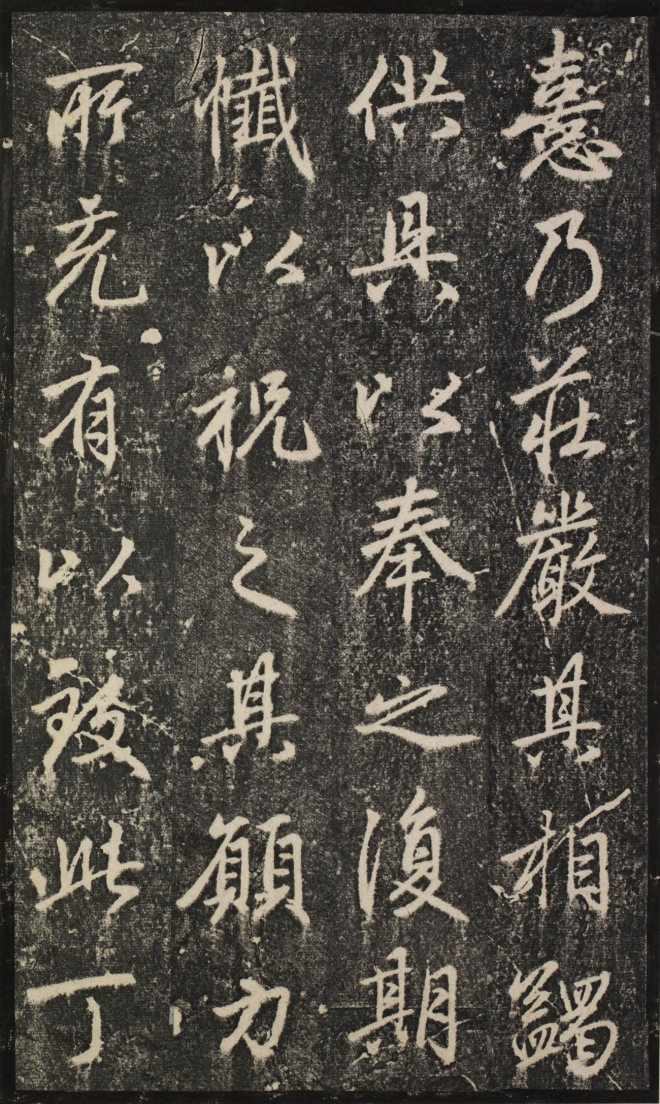 憙乃莊嚴其相蠲
供具以奉之復期
懺以祝之其願力
所充有以致此丁